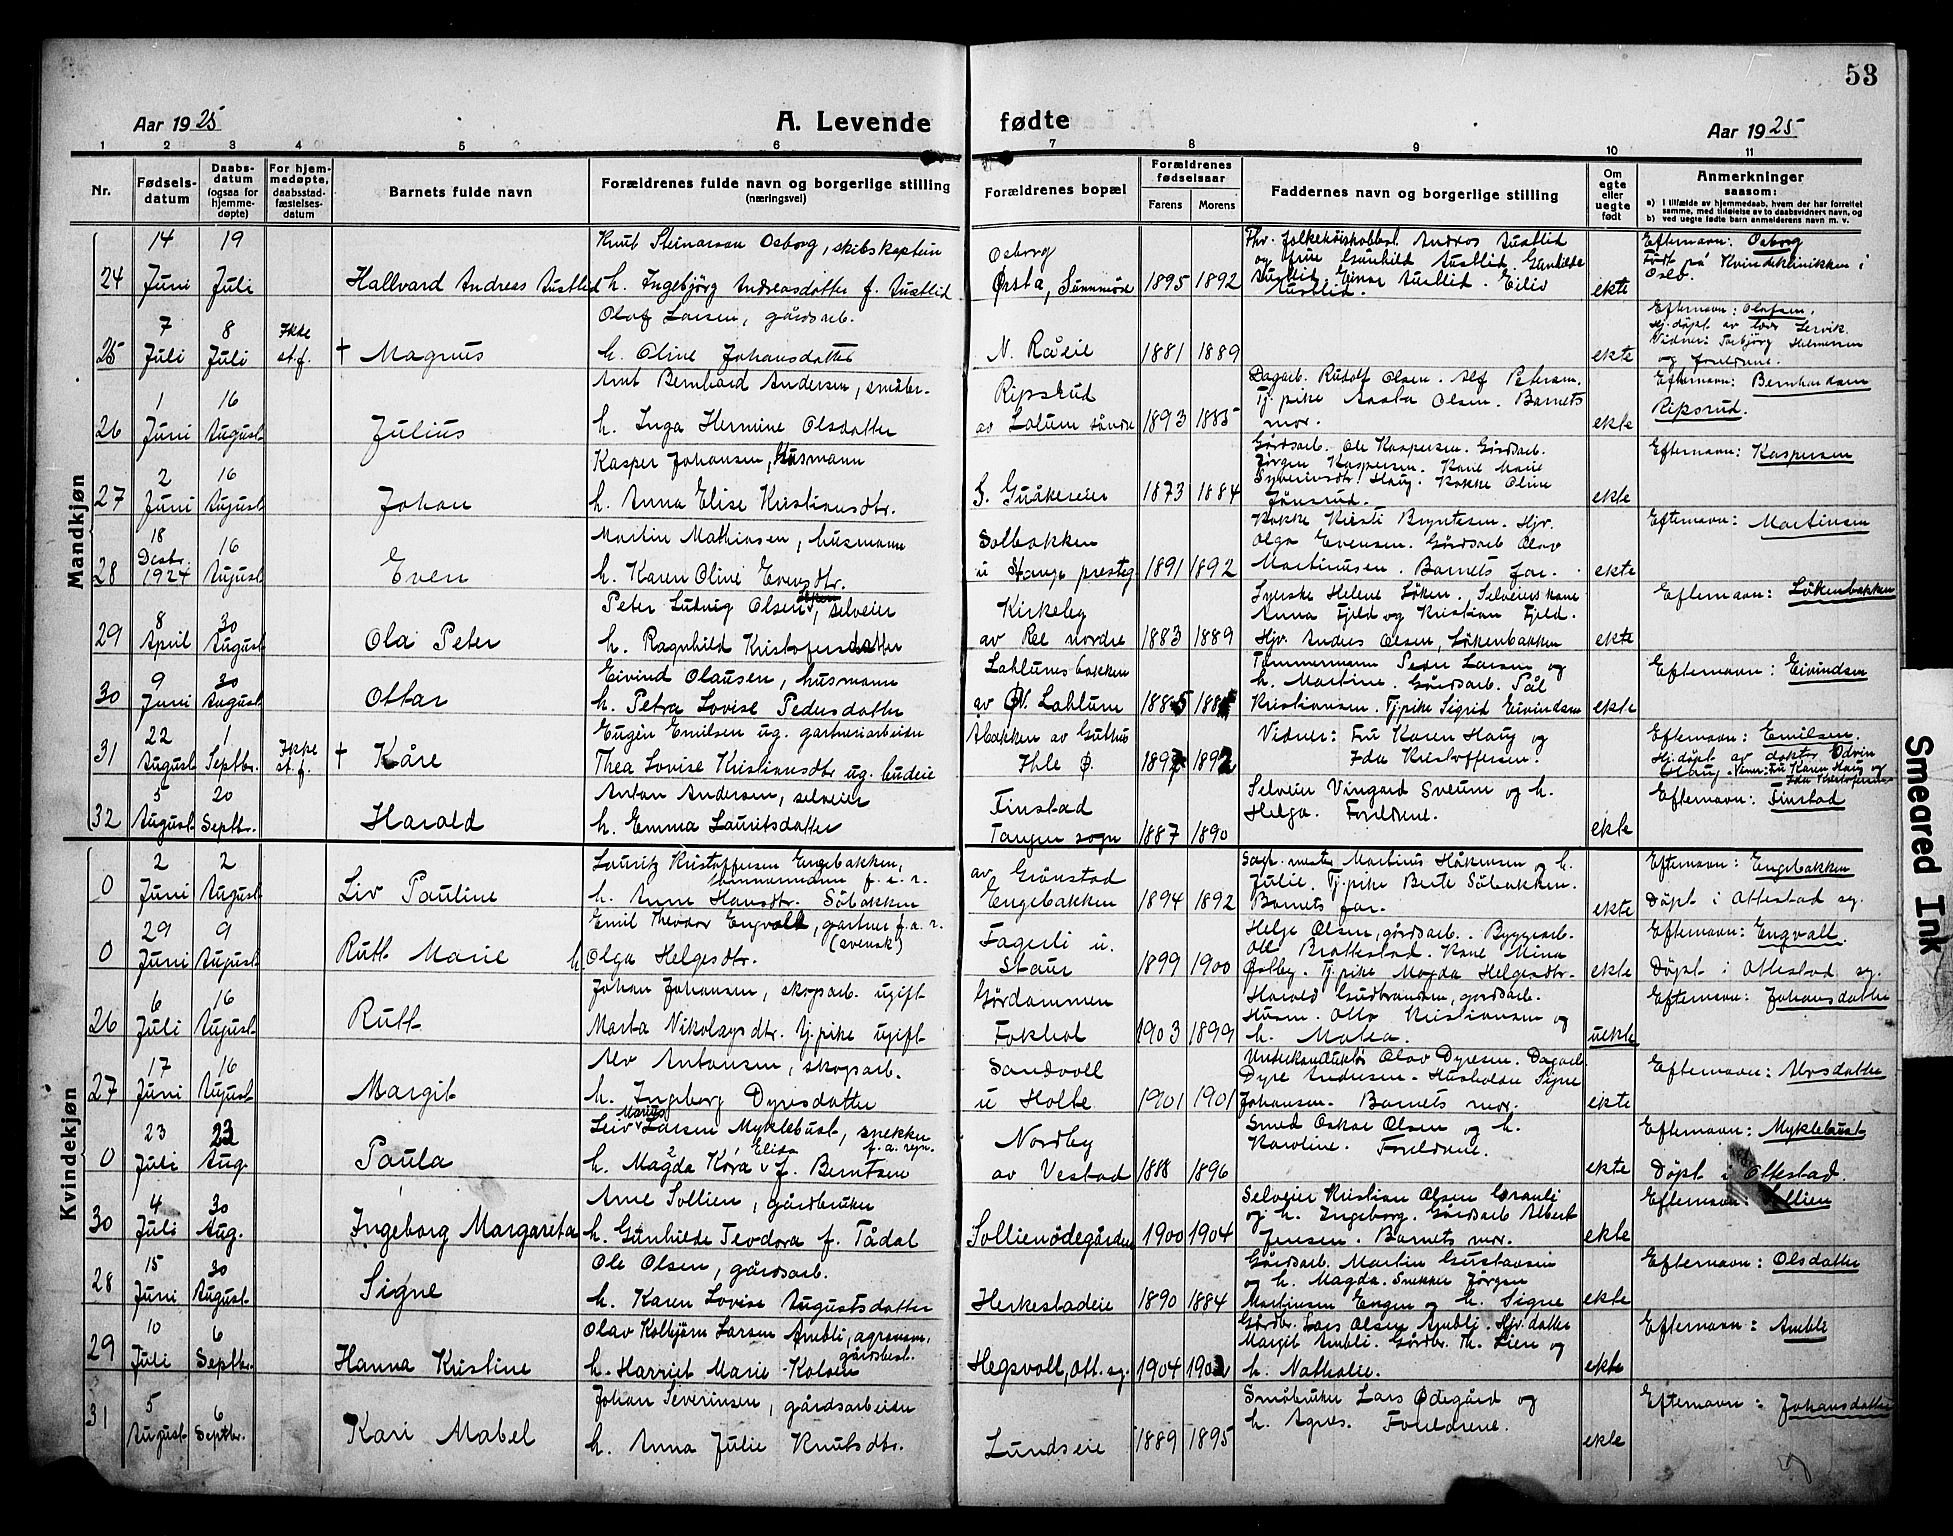 53
Aar 1925
A. Levende
fødte
Aar 1925
1 2 3 4 5 6 7 8 9 10 11
Nr.
Fødsels-
datum
Daabs-
datum
(ogsaa for
hjemme-
døpte)
For hjem-
medøpte,
daabsstad-
fæstelses-
datum
Barnets fulde navn
Forældrenes fulde navn og borgerlige stilling
(næringsvei)
Forældrenes bopæl
Forældrenes
fødselsaar
Farens Morens
Faddernes navn og borgerlige stilling
Om
egte
eller
uegte
født
Anmerkninger
saasom:
a) I tilfælde av hjemmedaab, hvem der har forrettet
samme, med tilføielse av to daabsvidners navn, og
b) ved uegte fødte barn anmelderens navn m. v.
Mandkjøn
24 14 Juni 19 Juli Hallvard Andreas Austlid
Knut Steinarson Osborg, skibskaptein
h. Ingebjörg Andreasdatter f. Austlid
Osborg
Ørsta, Sunnmöre 1895 1892
Andres Austlid
og frue Gunhild Austlid. Gunhilde
Austlid. Einar Austlid. Eiliv
Austlid.
ekte
Efternavn: Osborg
Født på Kvindeklinikken i
Oslo.
25 7 Juli 8 Juli Ikke st.f. † Magnus
Olaf Larsen, gårdsarb.
h. Oline Johansdatter
N. Råeie 1881 1889 ekte
Efternavn: Olafsen.
Hj.döpt av
Vidner: Torbjörg
og foreldrene.
26 1 Juni 16 August Julius
Arnt Bernhard Andersen, småbr.
h. Inga Hermine Olsdatter
Ripsrud
av Lalum söndre 1893 1885
Dagarb. Rudolf Olsen. Alf Petersen.
Tj.pike Aasta Olsen. Barnets
mor.
ekte
Efternavn: Bernhardsen
Ripsrud.
27 2 Juni 16 August Johan
Kasper Johansen, husmann
h. Anna Elise Kristiansdtr.
S. Guåkereier 1873 1884
Gårdsarb. Ole Kaspersen. Gårdsarb.
Jörgen Kaspersen. Kone Marie
Syverinsdtr. Haug. Kokke Oline
Jönsrud.
ekte
Efternavn: Kaspersen
28 18 Desbr. 1924 16 August Even
Martin Mathiasen, husmann
h. Karen Oline Evensdtr.
Solbakken
u Stange presteg. 1891 1892
Kokke Kirsti Bryntesen. Hjv.
Olga Evensen. Gårdsarb Olav
Martinusen. Barnets far.
ekte
Efternavn: Martinsen
29 8 April 30 August Ola Peter
Peter Ludvig Olsen, selveier
h. Ragnhild Kristofersdatter
Kirkeby
av Rel nordre 1883 1889
Fyrske Helene Löken. Selveierskone
Anna Fjeld og Kristian Fjeld.
Hjv. Andres Olsen, Lökenbakken
ekte
Efternavn: Lökenbakken
30 9 Juni 30 August Ottar
Eivind Olausen, husmann
h. Petra Lovise Pedersdatter
Lahlumsbakken
av Ø. Lahlum 1885
Tömmermann Peder Larsen og
h. Martine. Gårdsarb. Pål
Kristiansen. Tj.pike Sigrid Eivindsen
ekte
Efternavn: Eivindsen
31 22 August 1 Septbr. Ikke st.f. † Kåre
Eugén Emilsen ug. gartneriarbeider
Thea Lovise Kristiansdtr ug. budeie
Åbakken av Guthus
Ihle Ø. 1897 1892
Vidner: Fru Karen Haug og
Ida Kristoffersen.
Efternavn: Emilsen.
Hj.döpt av doktor Edvin
Haug. Vidner: Fru Karen Haug og
Ida Kristoffersen
32 5 August 20 Septbr. Harald
Anton Andersen, selveier
h. Emma Lauritsdatter
Finstad
Tangen sogn 1887 1890
Selveier Vingard Sveum og h.
Helga. Foreldrene.
ekte
Efternavn: Finstad
Kvindekjøn
0 2 Juni 2 August Liv Pauline
Lauritz Kristoffersen Engebakken,
tömmermann f. a. r.
h. Anne Hansdtr. Söbakken
av Grönstad
Engebakken 1894 1892
Sagb.mester Martinus Håkensen og h.
Julie. Tj.pike Berte Söbakken.
Barnets far.
ekte
Efternavn: Engebakken
Döpt i Ottestad sg.
0 29 Juni 9 August Rutt Marie
Emil Theodor Engvall, gartner f.a.r.
(svensk)
h Olga Helgesdtr.
Fagerli u.
Staur 1899 1900
Helge Olsen, gårdsarb. Byggearb.
Otto Brottestad. Kone Mina
Østby. Tj.pike Magda Helgesdtr.
ekte
Efternavn: Engvall.
Döpt i Ottestad sg.
26 6 Juli 16 August Rutt
Johan Johansen, skogarb. ugift
Marta Nikolaysdtr. tj.pike ugift
Gördammen
Fokhol 1903 1899
Harald Gudbransen, gårdsarb.
Husm. Otto Kristiansen og
h. Matea.
uekte
Efternavn: Johansdatter
27 17 Juni 16 August Margit
Alv Antonsen, skogarb.
h. Ingeborg Dyresdatter
Sandvoll
u Holte 1901 1901
Underkonduktör Olav Dyresen. Dagarb
Dyre Andresen. Husholder Signe
Johansen. Barnets mor.
ekte
Efternavn: Alvsdatter
0 23 Juli 23 Aug. Paula
Leiv Marius Larsen Myklebust, snekker
f.a. sgn.
h. Magda Kora Elida f. Berntsen
Nordby
av Vestad 1888 1896
Smed Oskar Olsen og h.
Karoline. Foreldrene.
ekte
Efternavn: Myklebust
Döpt i Ottestad.
30 4 Juli 30 Aug. Ingeborg Margareta
Arne Sollien, gårdbruker
h. Gunhilde Teodora f. Tådal
Sollienödegården 1900 1904
Selveier Kristian Olsen Granli
og h. Ingeborg. Gårdsarb Albert
Jensen. Barnets mor.
ekte
Efternavn: Sollien
28 15 Juni 30 August Signe
Ole Olsen, gårdsarb.
h. Karen Lovise Augustsdatter
Herkestadeie 1890 1884
Gårdsarb. Martin Gustavsen
og h. Magda. Snekker Jörgen
Martinsen Engen og h. Signe
ekte
Efternavn: Olsdatter
29 10 Juli 6 Septbr. Hanna Kristine
Olav Kolbjörn Larsen Ambli, agronom,
gårdsbest.
h. Harriet Marie Kolsen
Hegsvoll, Ott. sg. 1904 1902
Gårdbr. Lars Olsen Ambli. Hjv.datter
Margit Ambli. Gårdbr. Th. Lien og
h. Nathalie.
ekte
Efternavn: Amble
31 5 August 6 Septbr. Kari Mabel
Johan Severinsen, gårdsarbeider
h. Anna Julie Knutsdtr.
Lundseie 1889 1895
Småbruker Lars Ødegård og
h. Agnes. Foreldrene.
ekte
Efternavn: Johansdatter
Smeared Ink